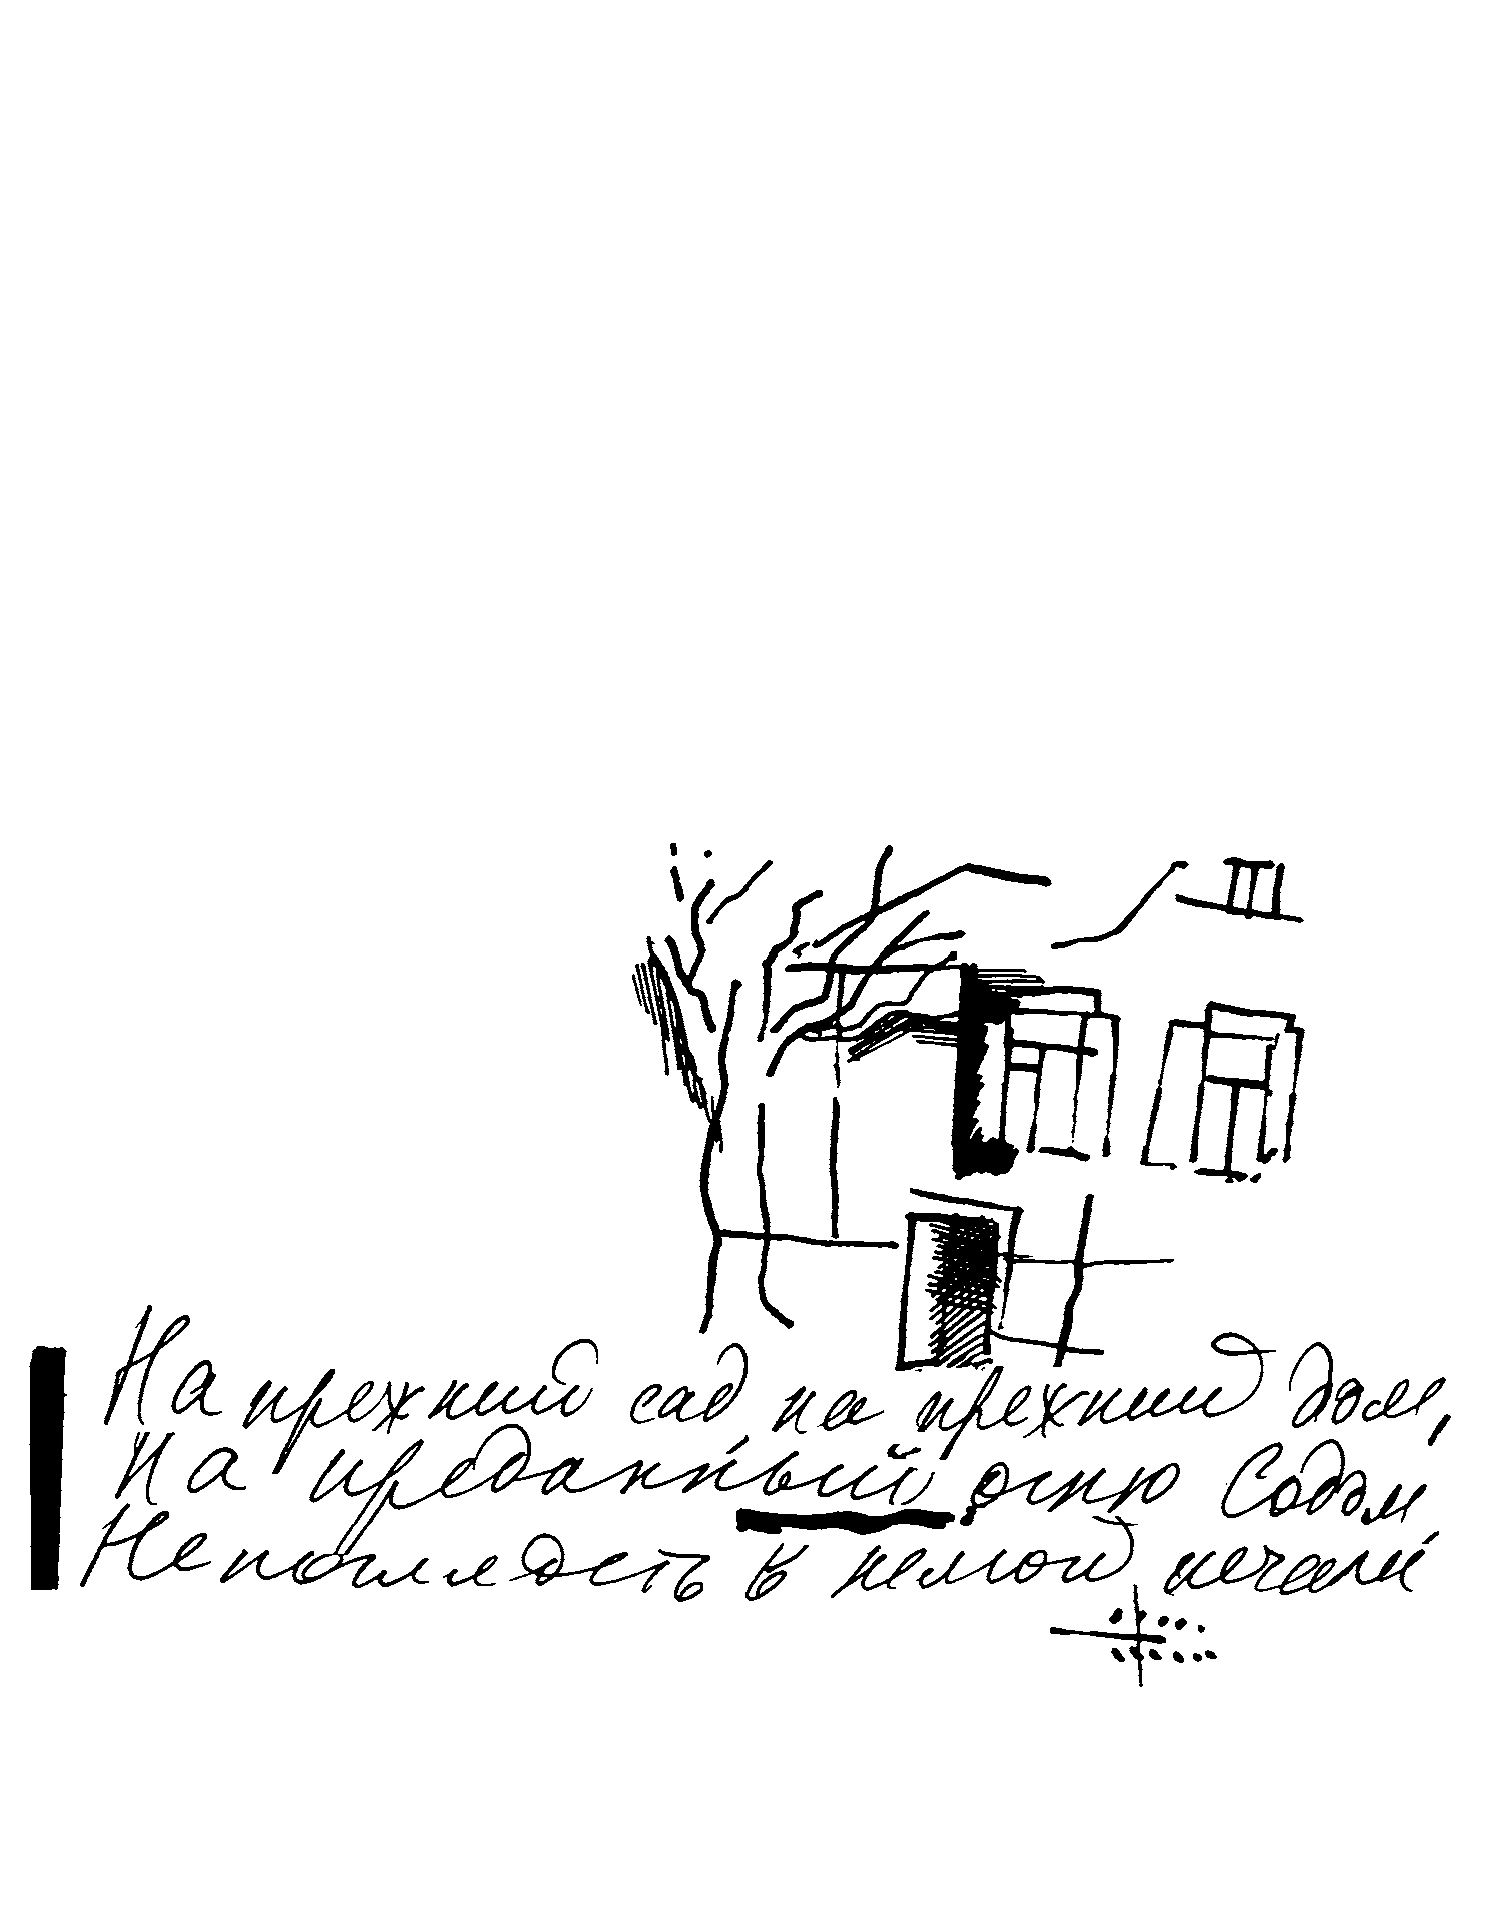 На прежний сад на прежний дом,
На преданный огню Содом,
Не поглядеть в немой печали